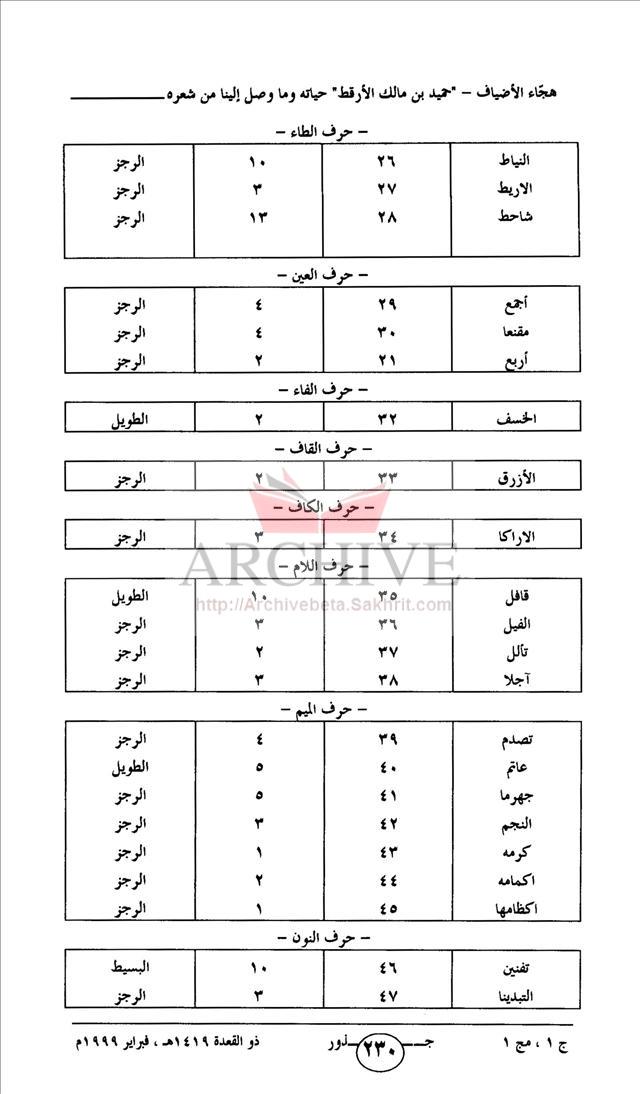 هجّاء الأضياف – "حميد بن مالك الأرقط" حياته وما وصل إلينا من شعره
– حرف الطاء –
النياط ٢٦ ١٠ الرجز
الاريط ٢٧ ٣ الرجز
شاحط ٢٨ ١٣ الرجز
– حرف العين –
أجمع ٢٩ ٤ الرجز
مقنعا ٣٠ ٤ الرجز
أربع ٢١ ٢ الرجز
– حرف الفاء –
الخسف ٣٢ ٢ الطويل
– حرف القاف –
الأزرق ٣٣ ٢ الرجز
– حرف الكاف –
الاراكا ٣٤ ٣ الرجز
ARCHIVE
– حرف اللام –
قافل ٣٥ ١٠ الطويل
http://Archivebeta.Sakhrit.com
الفيل ٣٦ ٣ الرجز
تألل ٣٧ ٢ الرجز
آجلا ٣٨ ٣ الرجز
– حرف الميم –
تصدم ٣٩ ٤ الرجز
عاتم ٤٠ ٥ الطويل
جهرما ٤١ ٥ الرجز
النجم ٤٢ ٣ الرجز
كرمه ٤٣ ١ الرجز
اكمامه ٤٤ ٢ الرجز
اكظامها ٤٥ ١ الرجز
– حرف النون –
تفنين ٤٦ ١٠ البسيط
التبدينا ٤٧ ٣ الرجز
ج ١ ، مج ١ جـذور ٢٣٠ ذو القعدة ١٤١٩هـ ، فبراير ١٩٩٩م